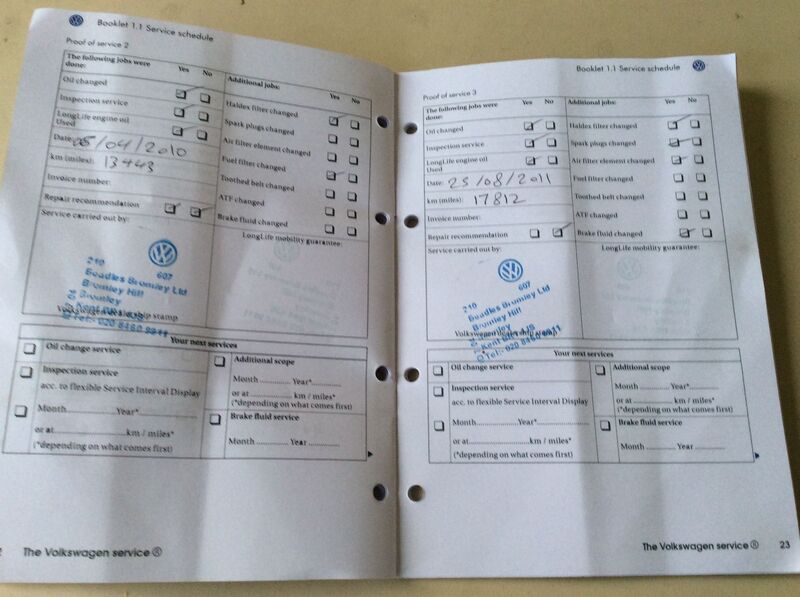 Booklet 1.1 Service schedule
Proof of service 2
The following jobs were done:
Yes No
Oil changed
Inspection service
LongLife engine oil
Used
Date: 05/04/2010
km (miles): 13443
Invoice number:
Repair recommendation
Service carried out by:
210 607
Beadles Bromley Ltd
Bromley Hill
Bromley
Kent
Tel:- 020 8460 9911
Volkswagen dealership stamp
Additional jobs:
Yes No
Haldex filter changed
Spark plugs changed
Air filter element changed
Fuel filter changed
Toothed belt changed
ATF changed
Brake fluid changed
LongLife mobility guarantee:
Your next services
Oil change service
Inspection service
acc. to flexible Service Interval Display
Month ............ Year*............
or at ............ km / miles*
(*depending on what comes first)
Additional scope
Month ............ Year*............
or at ............ km / miles*
(*depending on what comes first)
Brake fluid service
Month ............ Year ............
The Volkswagen service
Booklet 1.1 Service schedule
Proof of service 3
The following jobs were done:
Yes No
Oil changed
Inspection service
LongLife engine oil
Used
Date: 25/08/2011
km (miles): 17812
Invoice number:
Repair recommendation
Service carried out by:
210 607
Beadles Bromley Ltd
Bromley Hill
Bromley
Kent
Tel:- 020 8460 9911
Volkswagen dealership stamp
Additional jobs:
Yes No
Haldex filter changed
Spark plugs changed
Air filter element changed
Fuel filter changed
Toothed belt changed
ATF changed
Brake fluid changed
LongLife mobility guarantee:
Your next services
Oil change service
Inspection service
acc. to flexible Service Interval Display
Month ............ Year*............
or at ............ km / miles*
(*depending on what comes first)
Additional scope
Month ............ Year*............
or at ............ km / miles*
(*depending on what comes first)
Brake fluid service
Month ............ Year ............
The Volkswagen service 23